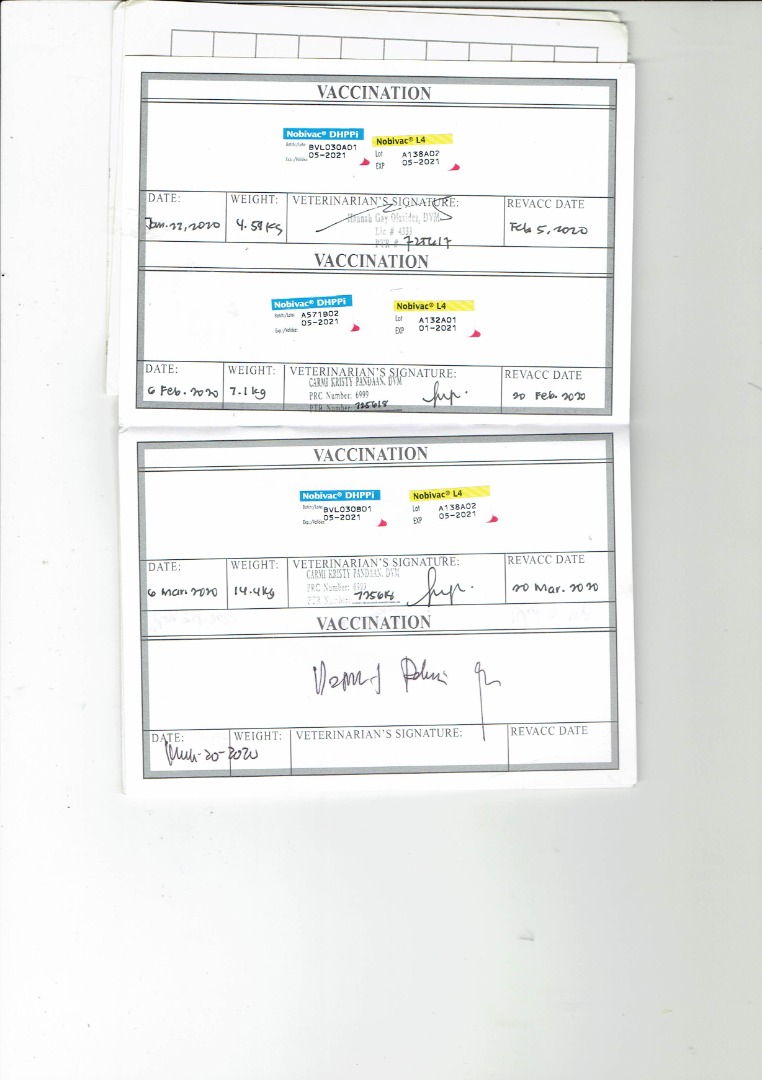 VACCINATION
Nobivac® DHPPi
Nobivac® L4
BVL030A01
05-2021
Lot A138A02
EXP 05-2021
DATE: WEIGHT: VETERINARIAN'S SIGNATURE: REVACC DATE
Jan. 22, 2020 4.58 kg Feb 5, 2020
Hannah Gay Olavides, DVM
Lic # 4333
PTR # 725617
VACCINATION
Nobivac® DHPPi
Nobivac® L4
A571B02
05-2021
Lot A132A01
EXP 01-2021
DATE: WEIGHT: VETERINARIAN'S SIGNATURE: REVACC DATE
CARMI KRISTY PANDAAN, DVM
6 Feb. 2020 7.1 kg PRC Number: 6999 20 Feb. 2020
PTR Number: 725618
VACCINATION
Nobivac® DHPPi
Nobivac® L4
BVL030B01
05-2021
Lot A138A02
EXP 05-2021
DATE: WEIGHT: VETERINARIAN'S SIGNATURE: REVACC DATE
CARMI KRISTY PANDAAN, DVM
6 Mar. 2020 14.4 kg PRC Number: 20 Mar. 2020
PTR Number: 725618
VACCINATION
DATE: WEIGHT: VETERINARIAN'S SIGNATURE: REVACC DATE
20-2020